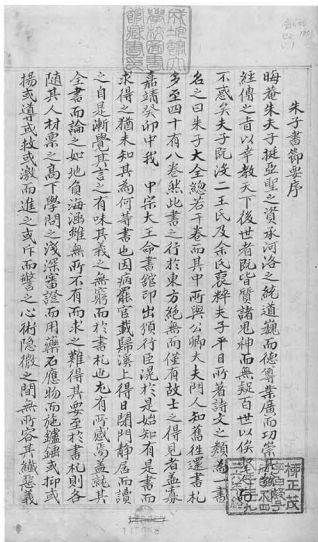 朱子書節要序
晦菴朱夫子挺亞聖之資承河洛之統道巍而德尊業廣而功崇
經傳之旨以幸教天下後世者既皆質諸鬼神而無疑百世以俟
不惑矣夫子既沒二王氏及余氏裒粹夫子平日所著詩文之類為一書
名之曰朱子大全總若干卷而其中所與公卿大夫門人知舊往還書札
多至四十有八卷然此書之行於東方絕無而僅有故士之得見者蓋寡
嘉靖癸卯中我 中宗大王命書館印出頒行臣滉於是始知有是書而
求得之猶未知其為何等書也因病罷官載歸溪上得日閉門靜居而讀
之自是漸覺其言之有味其義之無窮而於書札也尤有所感焉蓋就其
全書而論之如地負海涵雖無所不有而求之難得其要至於書札則各
隨其人材稟之高下學問之淺深審證而用藥石應物而施爐錘或抑或
揚或導或救或激而進之或斥而警之心術隱微之間無所容其纖惡義
柳正茂